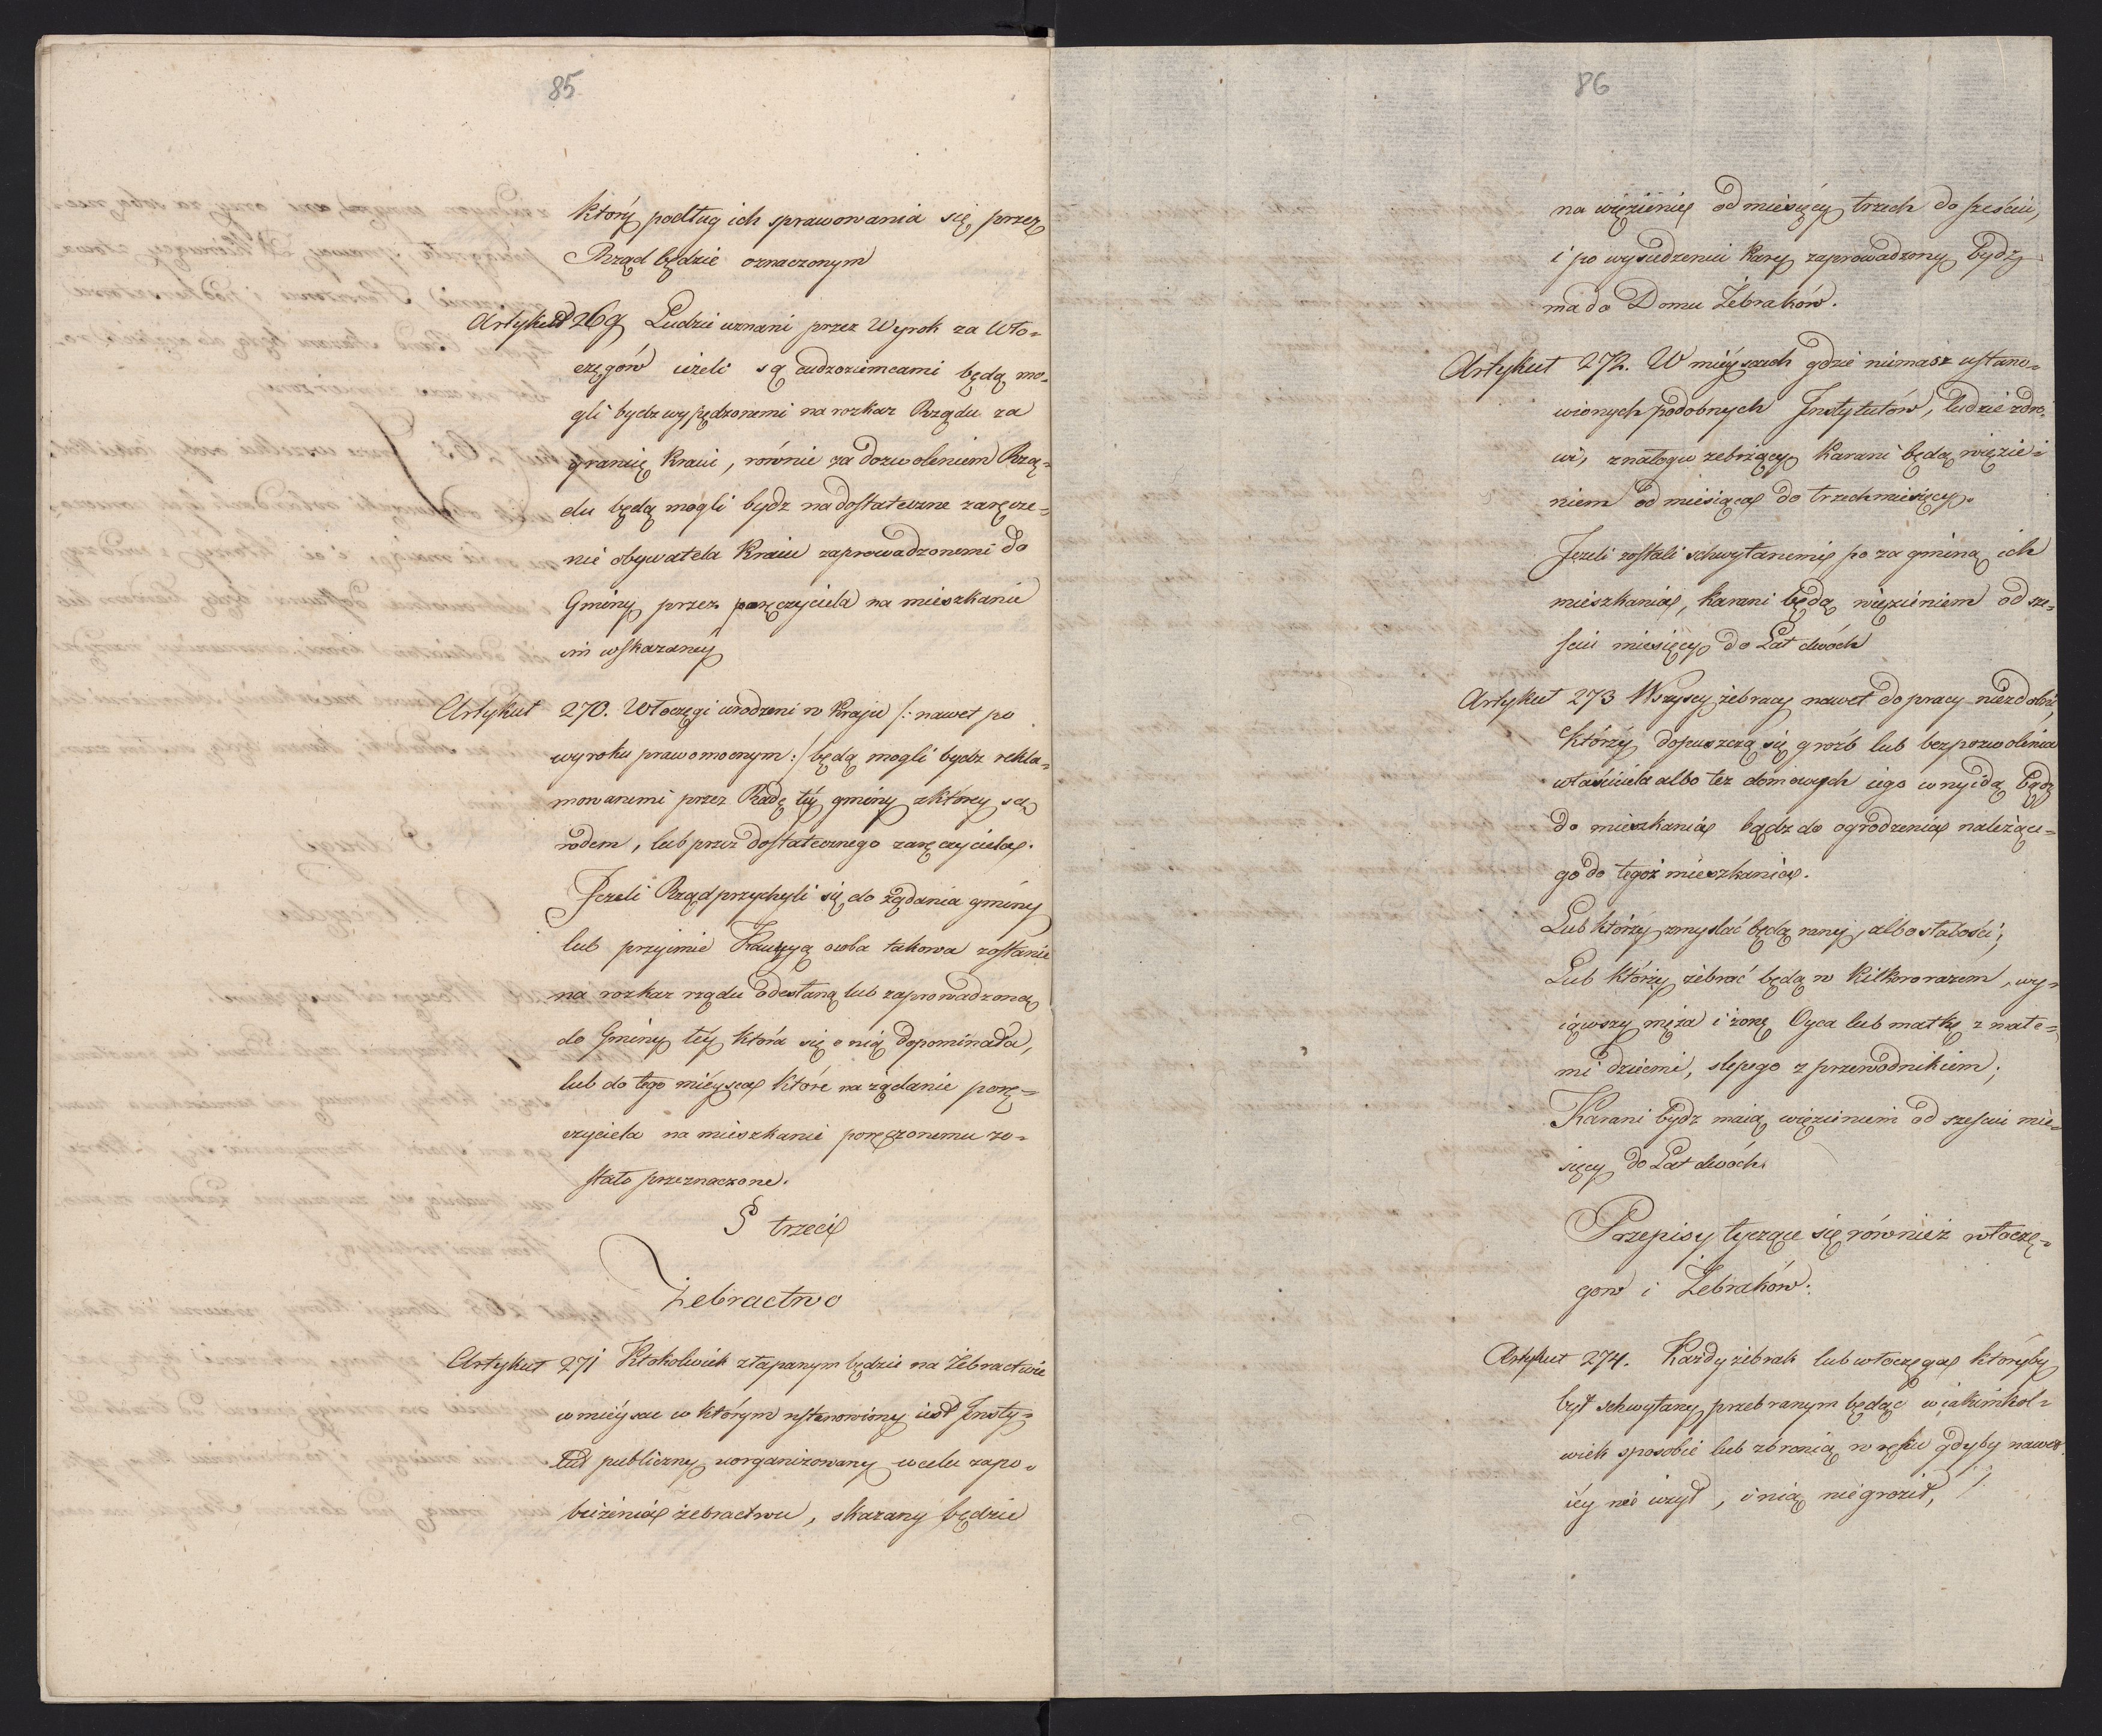 85.
który podług ich sprawowania się przez
Rząd będzie oznaczonym
Artykuł 269 Ludzie uznani przez Wyrok za Włó=
częgów ieżeli są cudzoziemcami będą mo=
gli bydz wypędzonemi na rozkaz Rządu za
granicę Kraiu, równie za dozwoleniem Rzą=
du będą mogli bydz na dostateczne zaręcze=
nie obywatela Kraiu zaprowadzonemi do
Gminy przez poręczyciela na mieszkanie
im wskazaney
Artykuł 270. Włoczęgi urodzeni w Kraju /: nawet po
wyroku prawomocnym :/ będą mogli bydz rekla=
mowanemi przez Radę téy gminy z którey są
rodem, lub przez dostatecznego zaręczyciela.
Jeżeli Rząd przychyli się do żądania gminy
lub przyimie Kaucyą osoba takowa zostanie
na rozkaz rządu odesłaną lub zaprowadzoną
do Gminy téy która się o nią dopominała,
lub do tego miéysca które na żądanie porę=
czyciela na mieszkanie poręczonemu zo=
stało przeznaczone.
§ trzeci
Żebractwo
Artykuł 271 Ktokolwiek złapanym będzie na Żebractwie
w miéyscu w którym ustanowiony iest Insty=
tut publiczny uorganizowany w celu zapo=
bieżenia żebractwu, skazany będzie
86
na więzienie od miesięcy trzech do sześciu,
i po wysiedzeniu Kary zaprowadzony bydź
ma do Domu Żebraków.
Artykuł 272. W miéyscach gdzie niemasz ustano=
wionych podobnych Instytutów, ludzie zdro=
wi, z nałogu żebrzący Karani będą więzie=
niem od miesiąca do trzech miesięcy.
Jeżeli zostali schwytanemi po za gminą ich
mieszkania, Karani będą więzieniem od sze=
ściu miesięcy do Lat dwóch
Artykuł 273 Wszyscy żebracy nawet do pracy niezdolni,
którzy dopuszczą się groźb lub bez pozwolenia
właściciela albo też domowych iego wnyidą bądz
do mieszkania bądz do ogrodzenia należące=
go do tegoż mieszkania.
Lub którzy zmyslać będą rany, albo słabości;
Lub którzy żebrać będą w Kilkoro razem, wy=
iąwszy męża i żonę Oyca lub matkę z małe=
mi dziećmi, slepego z przewodnikiem;
Karani bydz maią więzieniem od sześciu mie=
sięcy do Lat dwóch.
Przepisy tyczące się również włoczę=
gów i Żebraków.
Artykuł 274. Każdy żebrak lub włoczęga któryby
był schwytany przebranym będąc w iakimkol=
wiek sposobie lub z bronią w ręku gdyby nawet
iéy nie użył, i nią nie groził,